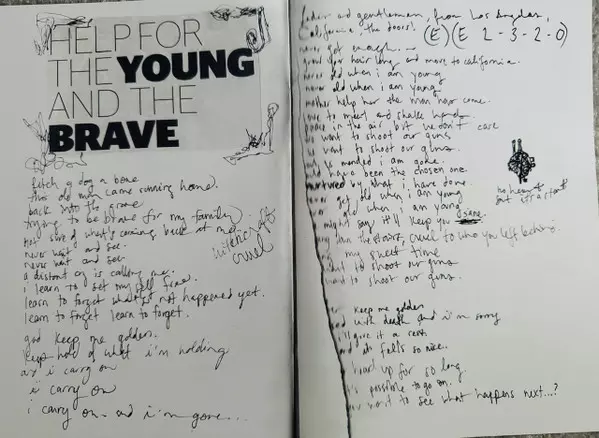 HELP FOR
THE YOUNG
AND THE
BRAVE
fetch a dog a bone
this old man came running home.
back into the grave
trying to be brave for my family.
not sure of what's coming back at me
never wait and see-
never wait and see-
a distant cry is calling me.
i learn to set myself free.
learn to forget what has not happened yet.
learn to forget learn to forget.
witchcraft
cruel
god keep me golden.
keep hold of what i'm holding
as i carry on
i carry on
i carry on and i'm gone...
ladies and gentlemen, from Los Angeles,
California, the doors!
(E) (E 2-3-2-0)
never get enough
grow your hair long and move to california.
old when i am young
never old when i am young
mother help her the man has come.
to meet and shake hands
peace in the air but we don't care
want to shoot our guns
want to shoot our guns.
i am gone.
have been the chosen one.
by what i have done.
get old when i am young
old when i am young
might say it'll keep you sane.
than the stairs, cruel to who you left behind.
my quiet time
to shoot our guns
to shoot our guns.
no heart
but it's a start
keep me golden
with death and i'm sorry
give it a rest
and it feels so nice.
heart up for so long.
possible to go on.
want to see what happens next...?